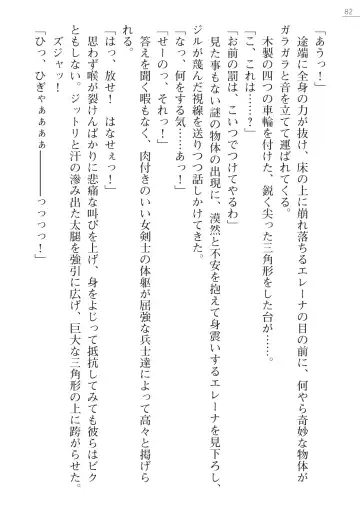 82
「あうっ！」
途端に全身の力が抜け、床の上に崩れ落ちるエレーナの目の前に、何やら奇妙な物体が
ガラガラと音を立てて運ばれてくる。
木製の四つの車輪を付けた、鋭く尖った三角形をした台が……。
「こ、これは……？」
「お前の罰は、こいつでつけてやるわ」
見た事もない謎の物体の出現に、漠然と不安を抱えて身震いするエレーナを見下ろし、
ジルが蔑んだ視線を送りつつ話しかけてきた。
「なっ、何をする気……あっ！」
「せーのっ、それっ！」
答えを聞く暇もなく、肉付きのいい女剣士の体躯が屈強な兵士達によって高々と掲げら
れる。
「はっ、放せ！　はなせぇっ！」
思わず喉が裂けんばかりに悲痛な叫びを上げ、身をよじって抵抗してみても彼らはビク
ともしない。ジットリと汗の滲み出た太腿を強引に広げ、巨大な三角形の上に跨がらせた。
ズジャッ！
「ひっ、ひぎゃぁぁぁぁ━━━━っっっっ！」